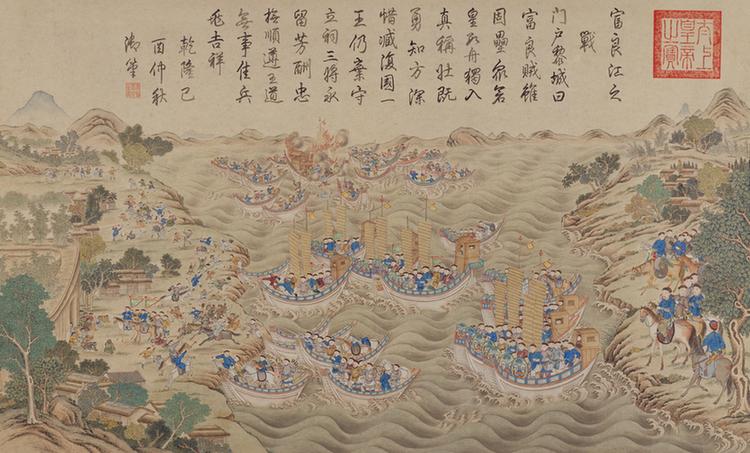 太上皇帝之寶
富良江之
戰
門户黎城曰
富良賊雖
固壘衆
皇孤舟獨入
真稱壯既
勇知方深
惜臧復國一
王仍棄守
立祠三將永
留芳酬忠
撫順遵王道
無事佳兵
兆吉祥
乾隆己
酉仲秋
御筆